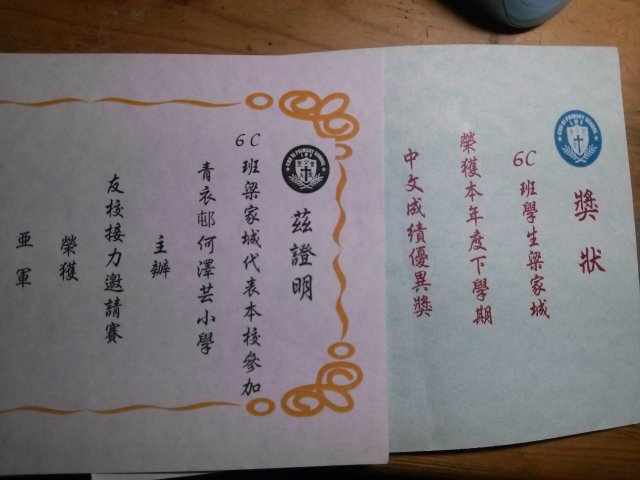 獎狀
6C班學生梁家城
榮獲本年度下學期
中文成績優異獎
茲證明
6C班梁家城代表本校參加
青衣邨何澤芸小學
主辦
友校接力邀請賽
榮獲
亞軍